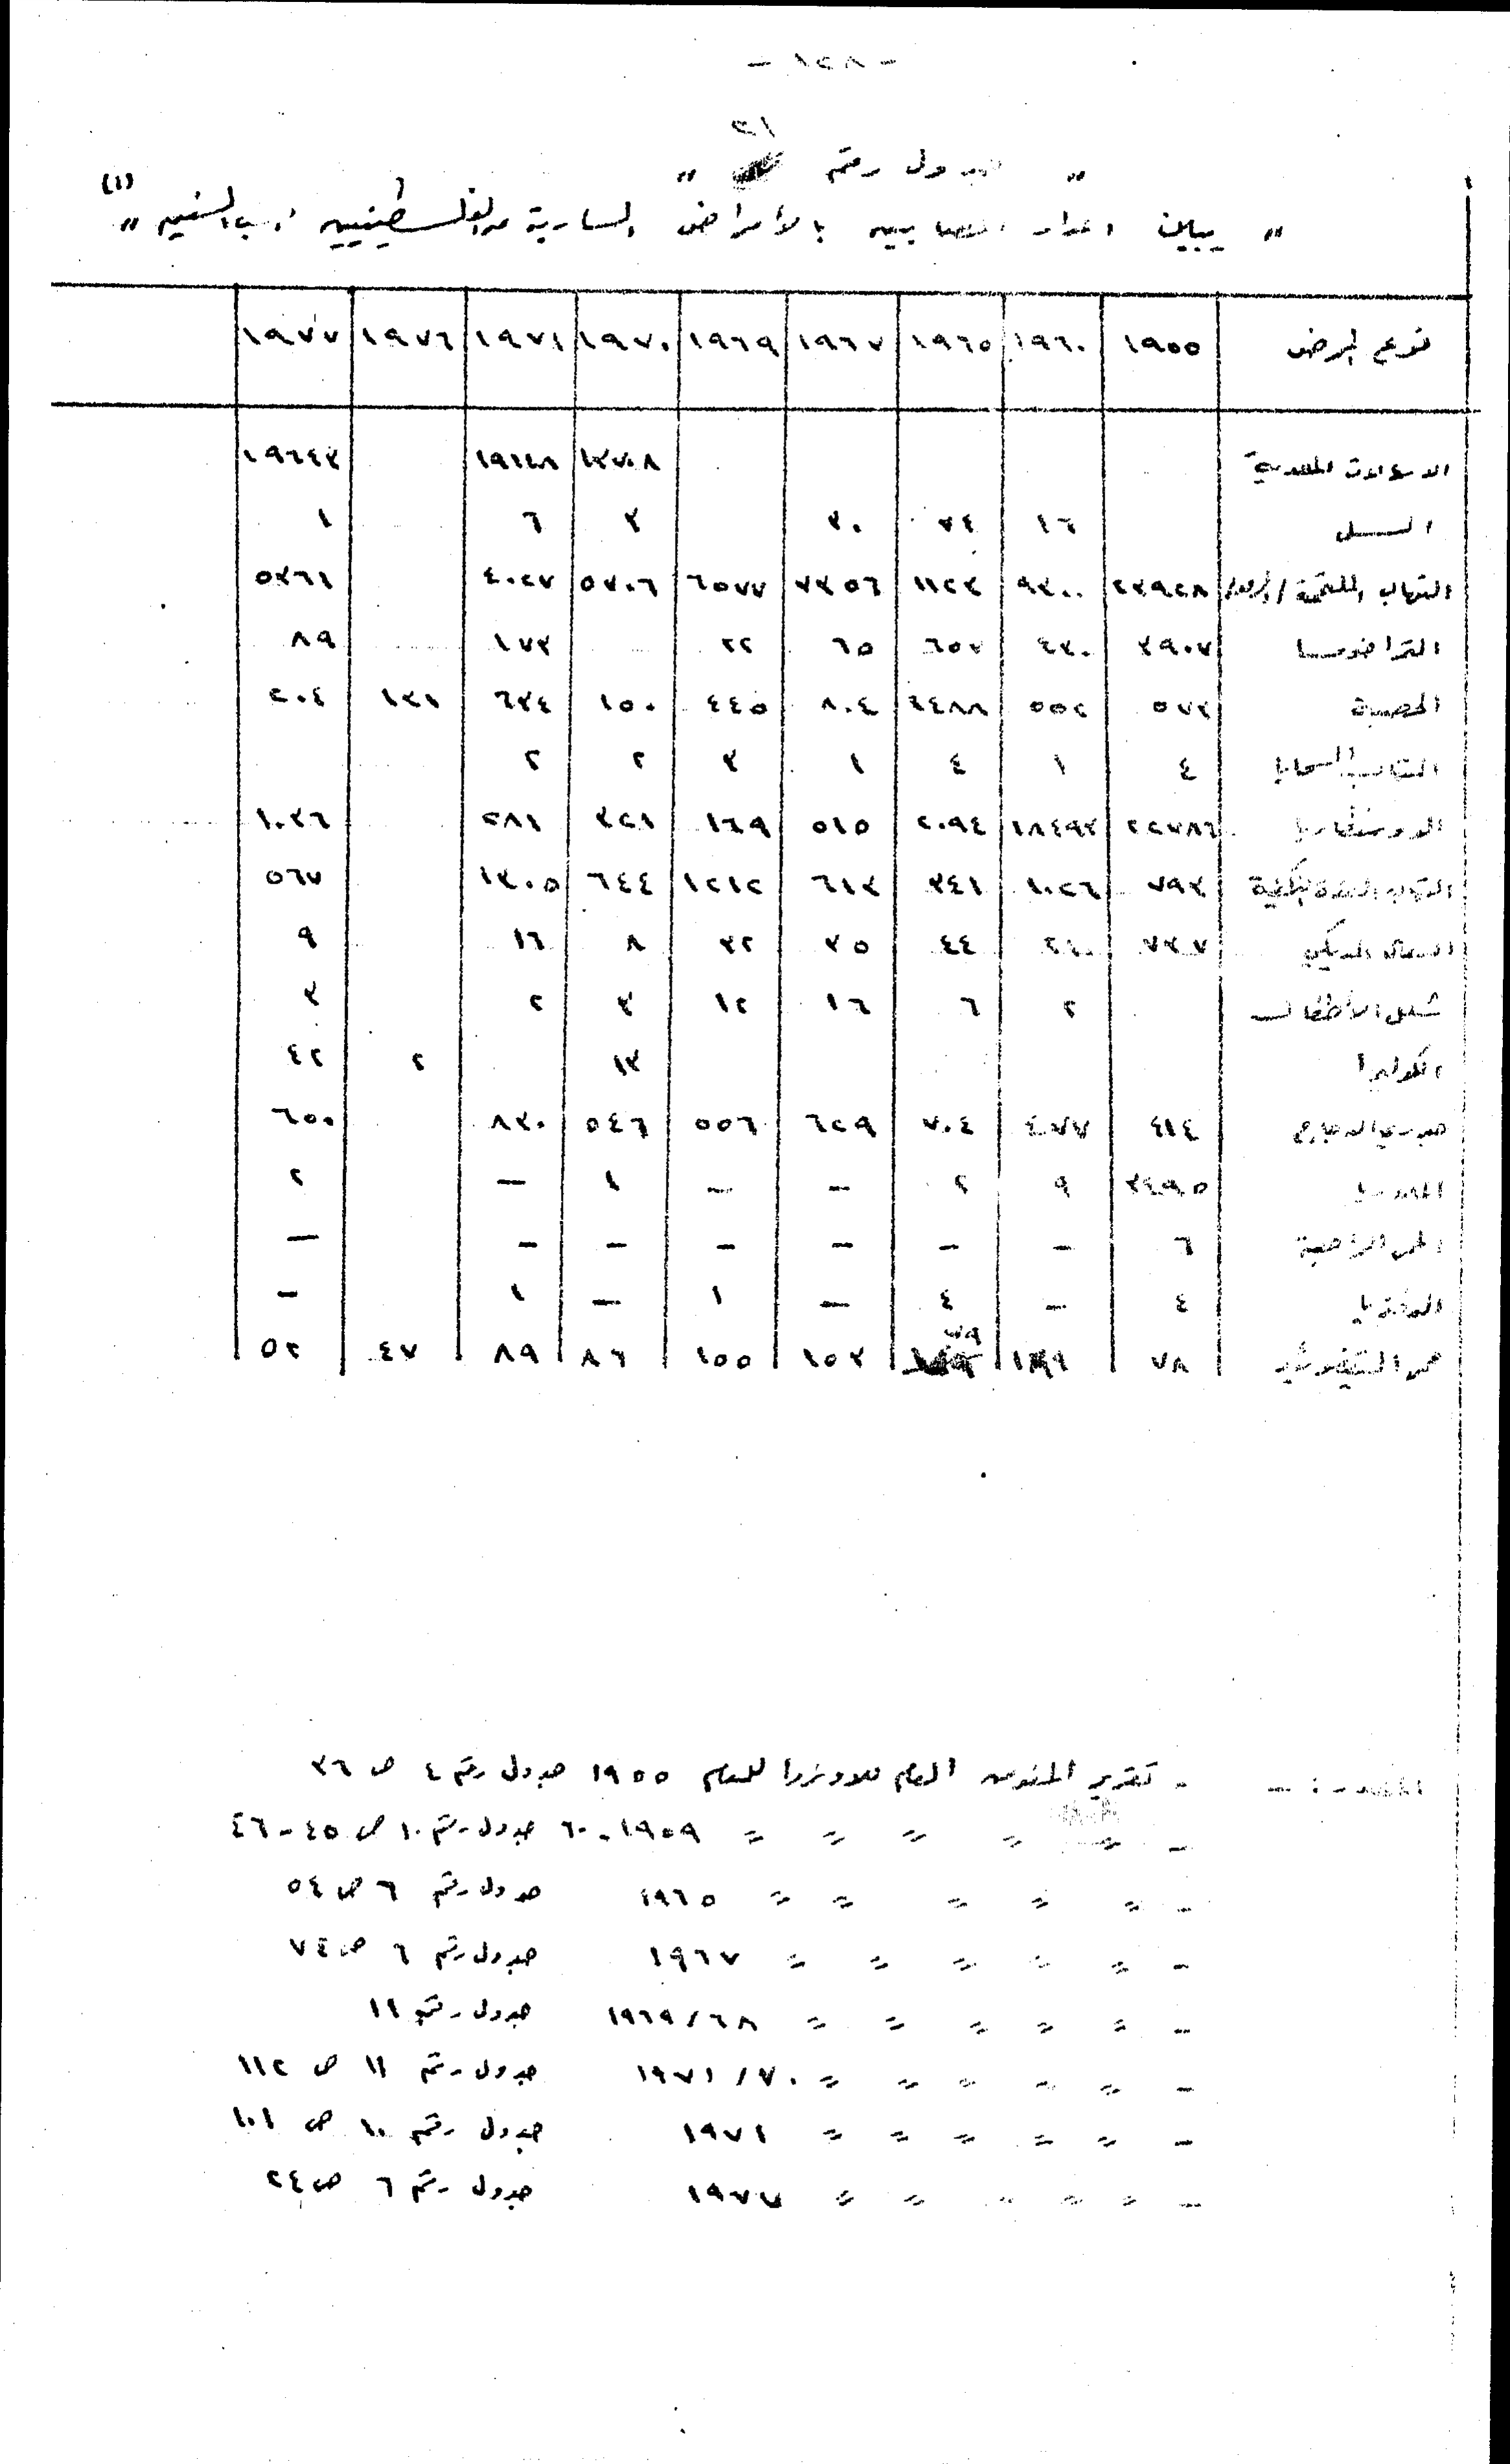 - ١٢٨ -
٣١
" جدول رقم "
" يبين اعداد المصابين بالأمراض السارية من الفلسطينيين حسب السنين " (١)
نوع المرض ١٩٥٥ ١٩٦٠ ١٩٦٥ ١٩٦٧ ١٩٦٩ ١٩٧٠ ١٩٧١ ١٩٧٦ ١٩٧٧
الاسهالات المعدية ١٣٧٠٨ ١٩٦٤٣
السل ١٦ ٧٤ ٣٠ ٣ ٦ ١
التهاب الملتحمة ٩٣٠٠ ١١٢٣ ٧٣٥٦ ٦٥٧٧ ٥٧٠٦ ٤٠٢٧ ٥٣٦١
التراخوما ٣٩٠٧ ٤٣٠ ٦٥٧ ٦٥ ٢٢ ١٧٣ ٨٩
الحصبة ٥٧٣ ٥٥٢ ٨٠٤ ٤٤٥ ١٥٠ ٦٣٤ ١٣١ ٢٠٤
التهاب السحايا ٤ ١ ٤ ١ ٣ ٢ ٢
الدوسنطاريا ٢٢٧٨٦ ١٨٤٩٣ ٢٠٩٤ ٥١٥ ١٦٩ ٣٢١ ٢٨١ ١٠٣٦
التهاب الغدة النكفية ٧٩٣ ١٠٢٦ ٣٤١ ٦١٣ ١٢١٢ ٦٤٤ ١٣٠٥ ٥٦٧
السعال الديكي ٧٣٧ ٤٤ ٣٥ ٣٢ ٨ ١٦ ٩
شلل الأطفال ٢ ٦ ١٦ ١٢ ٣ ٢ ٣
الكوليرا ١٣ ٢ ٤٢
جدري الدجاج ٤١٤ ٤٧٧ ٧٠٤ ٦٢٩ ٥٥٦ ٥٤٦ ٨٣٠ ٦٥٠
الملاريا ٣٤٩٥ ٩ ٢ - - ١ - ٢
الحمى الراجعة ٦ - - - - - - -
الدفتريا ٤ - ٤ - ١ - ١ -
حمى التيفوئيد ٧٨ ٧٩ ١٥٣ ١٥٥ ٨٦ ٨٩ ٤٧ ٥٢
المصدر : - - تقرير المفوض العام للاونروا للعام ١٩٥٥ جدول رقم ٤ ص ٣٦
- = = = = = ١٩٥٩-٦٠ جدول رقم ١٠ ص ٤٥-٤٦
- = = = = = ١٩٦٥ جدول رقم ٦ ص ٥٤
- = = = = = ١٩٦٧ جدول رقم ٦ ص ٧٤
- = = = = = ١٩٦٩/٦٨ جدول رقم ١١
- = = = = = ١٩٧١/٧٠ جدول رقم ١١ ص ١١٢
- = = = = = ١٩٧١ جدول رقم ١٠ ص ١٠١
- = = = = = ١٩٧٧ جدول رقم ٦ ص ٢٤